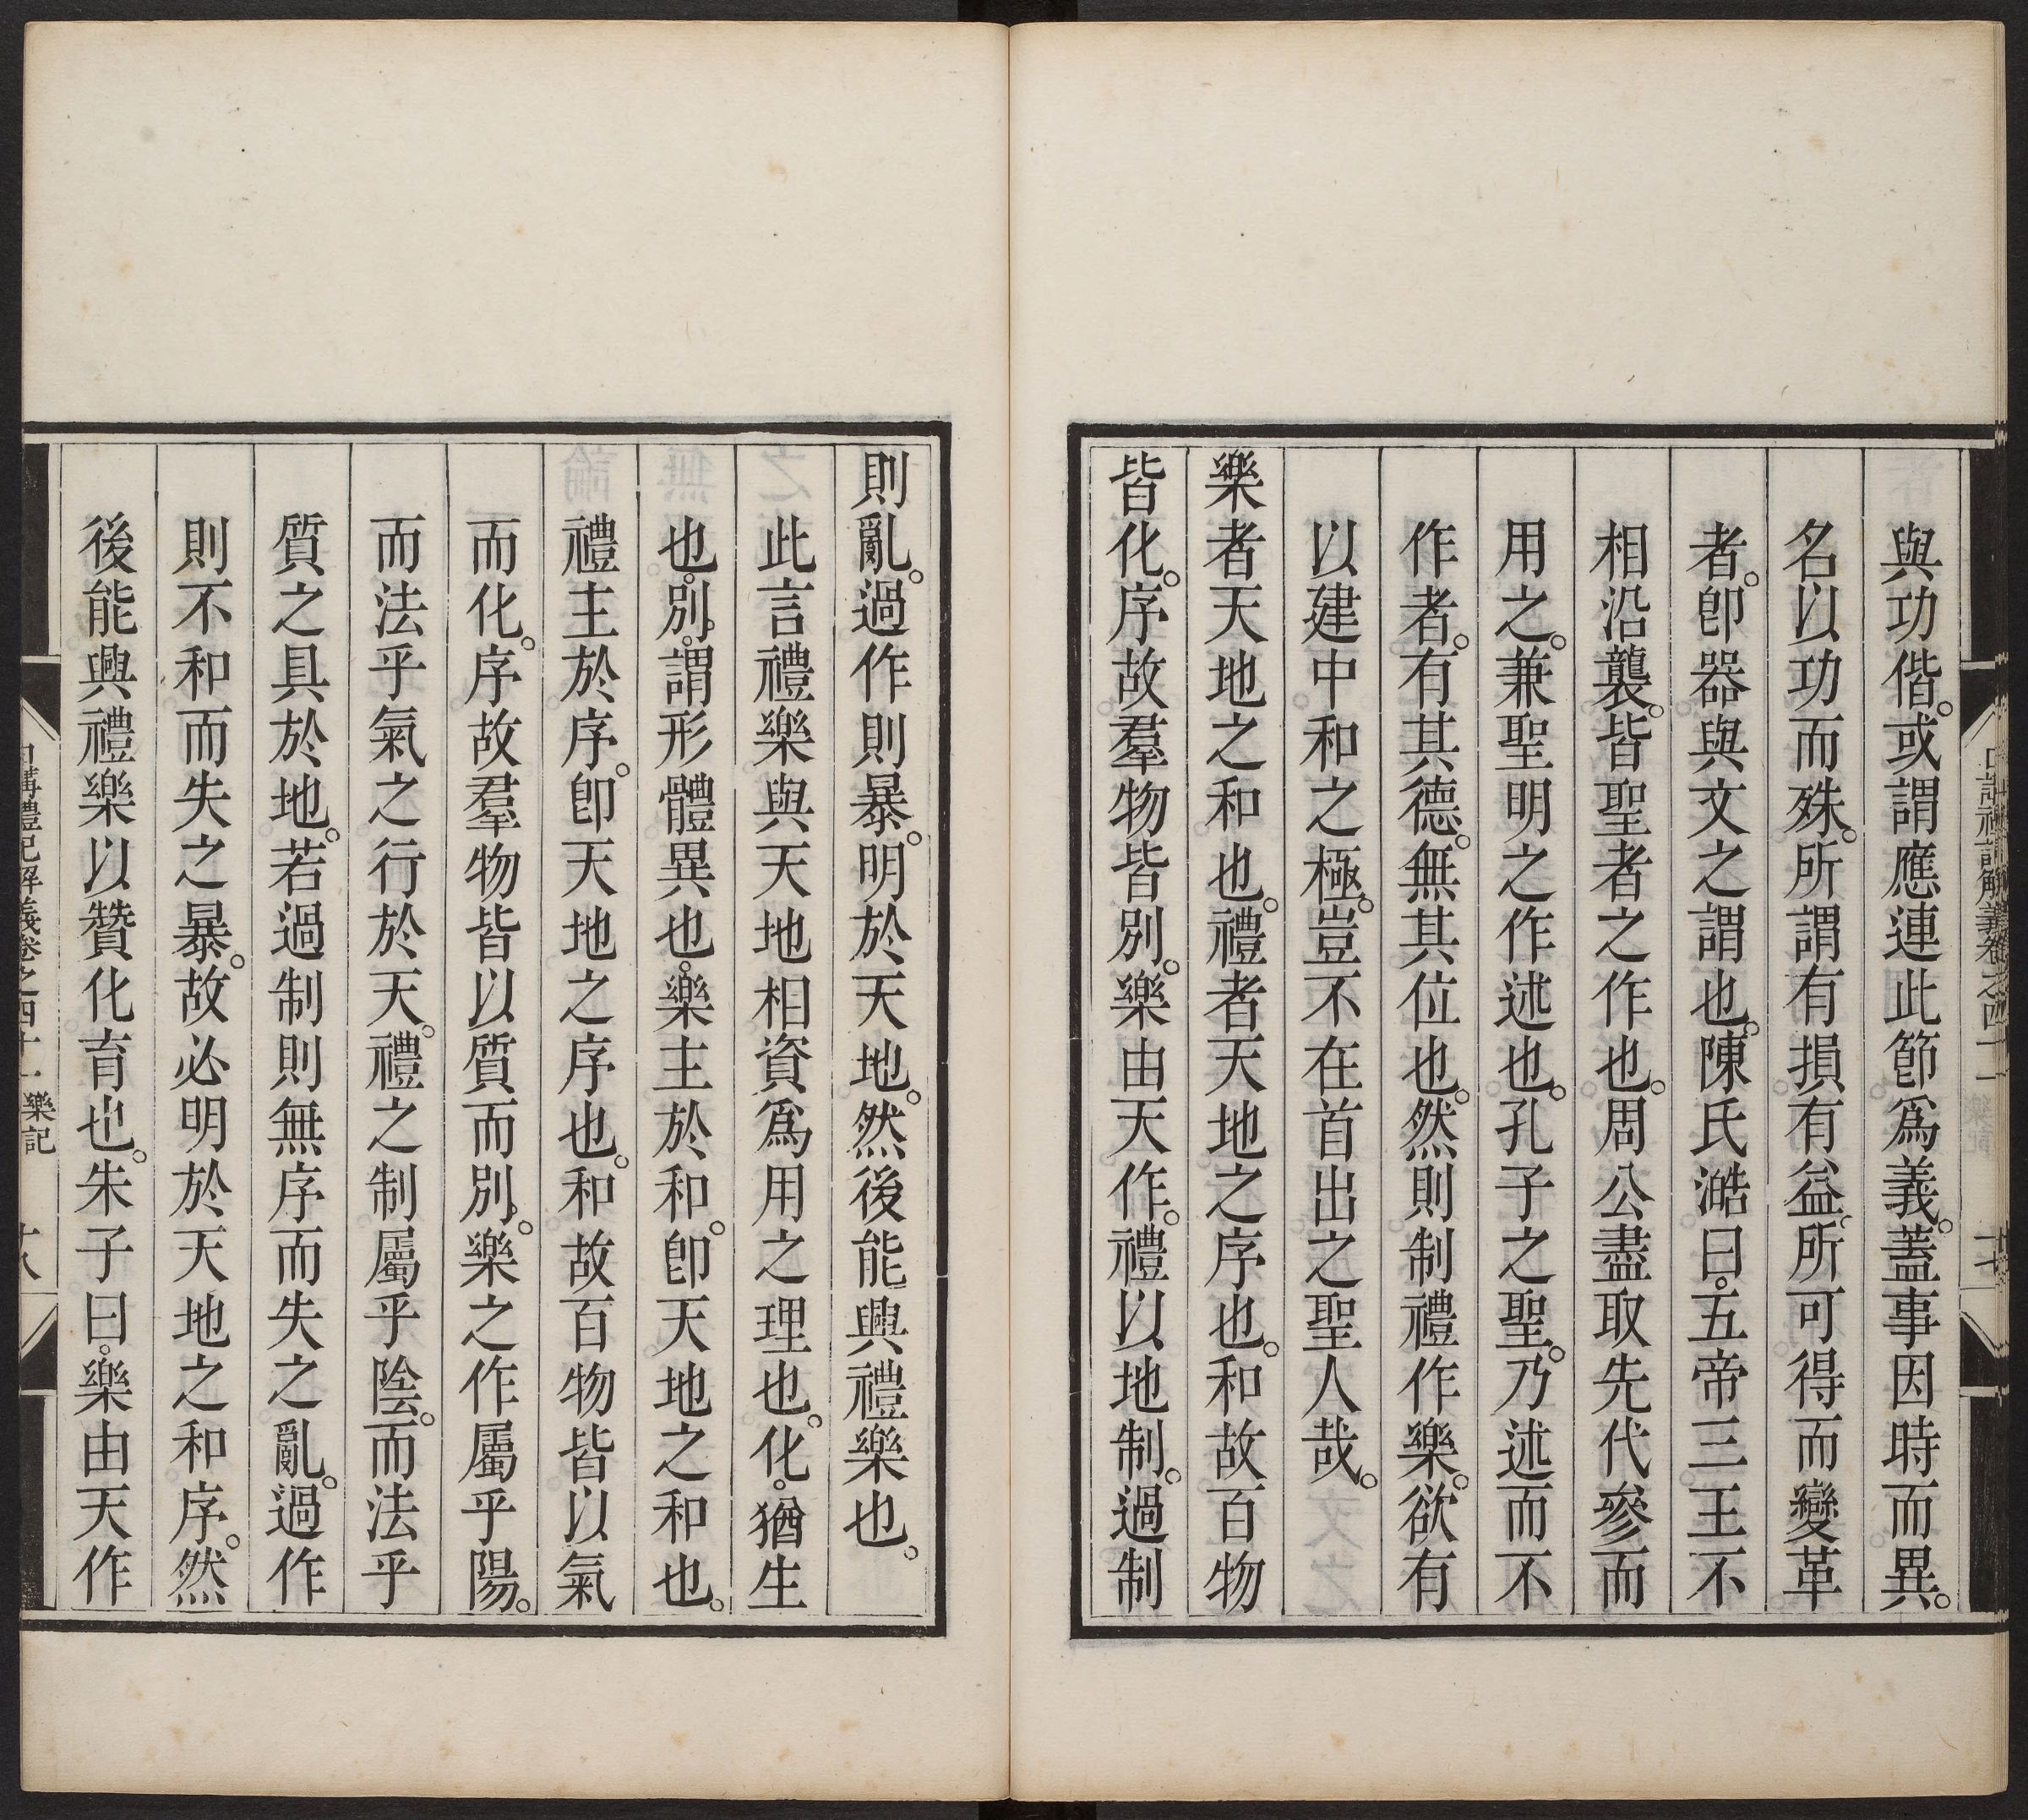 與功偕。或謂應連此節爲義。蓋事因時而異。
名以功而殊。所謂有損有益。所可得而變革
者。卽器與文之謂也。陳氏澔曰。五帝三王不
相沿襲。皆聖者之作也。周公盡取先代參而
用之。兼聖明之作述也。孔子之聖。乃述而不
作者。有其德。無其位也。然則制禮作樂。欲有
以建中和之極。豈不在首出之聖人哉。
樂者天地之和也。禮者天地之序也。和故百物
皆化。序故羣物皆別。樂由天作。禮以地制。過制
則亂。過作則暴。明於天地。然後能興禮樂也。
此言禮樂與天地相資爲用之理也。化。猶生
也。別。謂形體異也。樂主於和。卽天地之和也。
禮主於序。卽天地之序也。和故百物皆以氣
而化。序故羣物皆以質而別。樂之作屬乎陽。
而法乎氣之行於天。禮之制屬乎陰。而法乎
質之具於地。若過制則無序而失之亂。過作
則不和而失之暴。故必明於天地之和序。然
後能興禮樂以贊化育也。朱子曰。樂由天作
日講禮記解義卷之四十一 樂記 十八